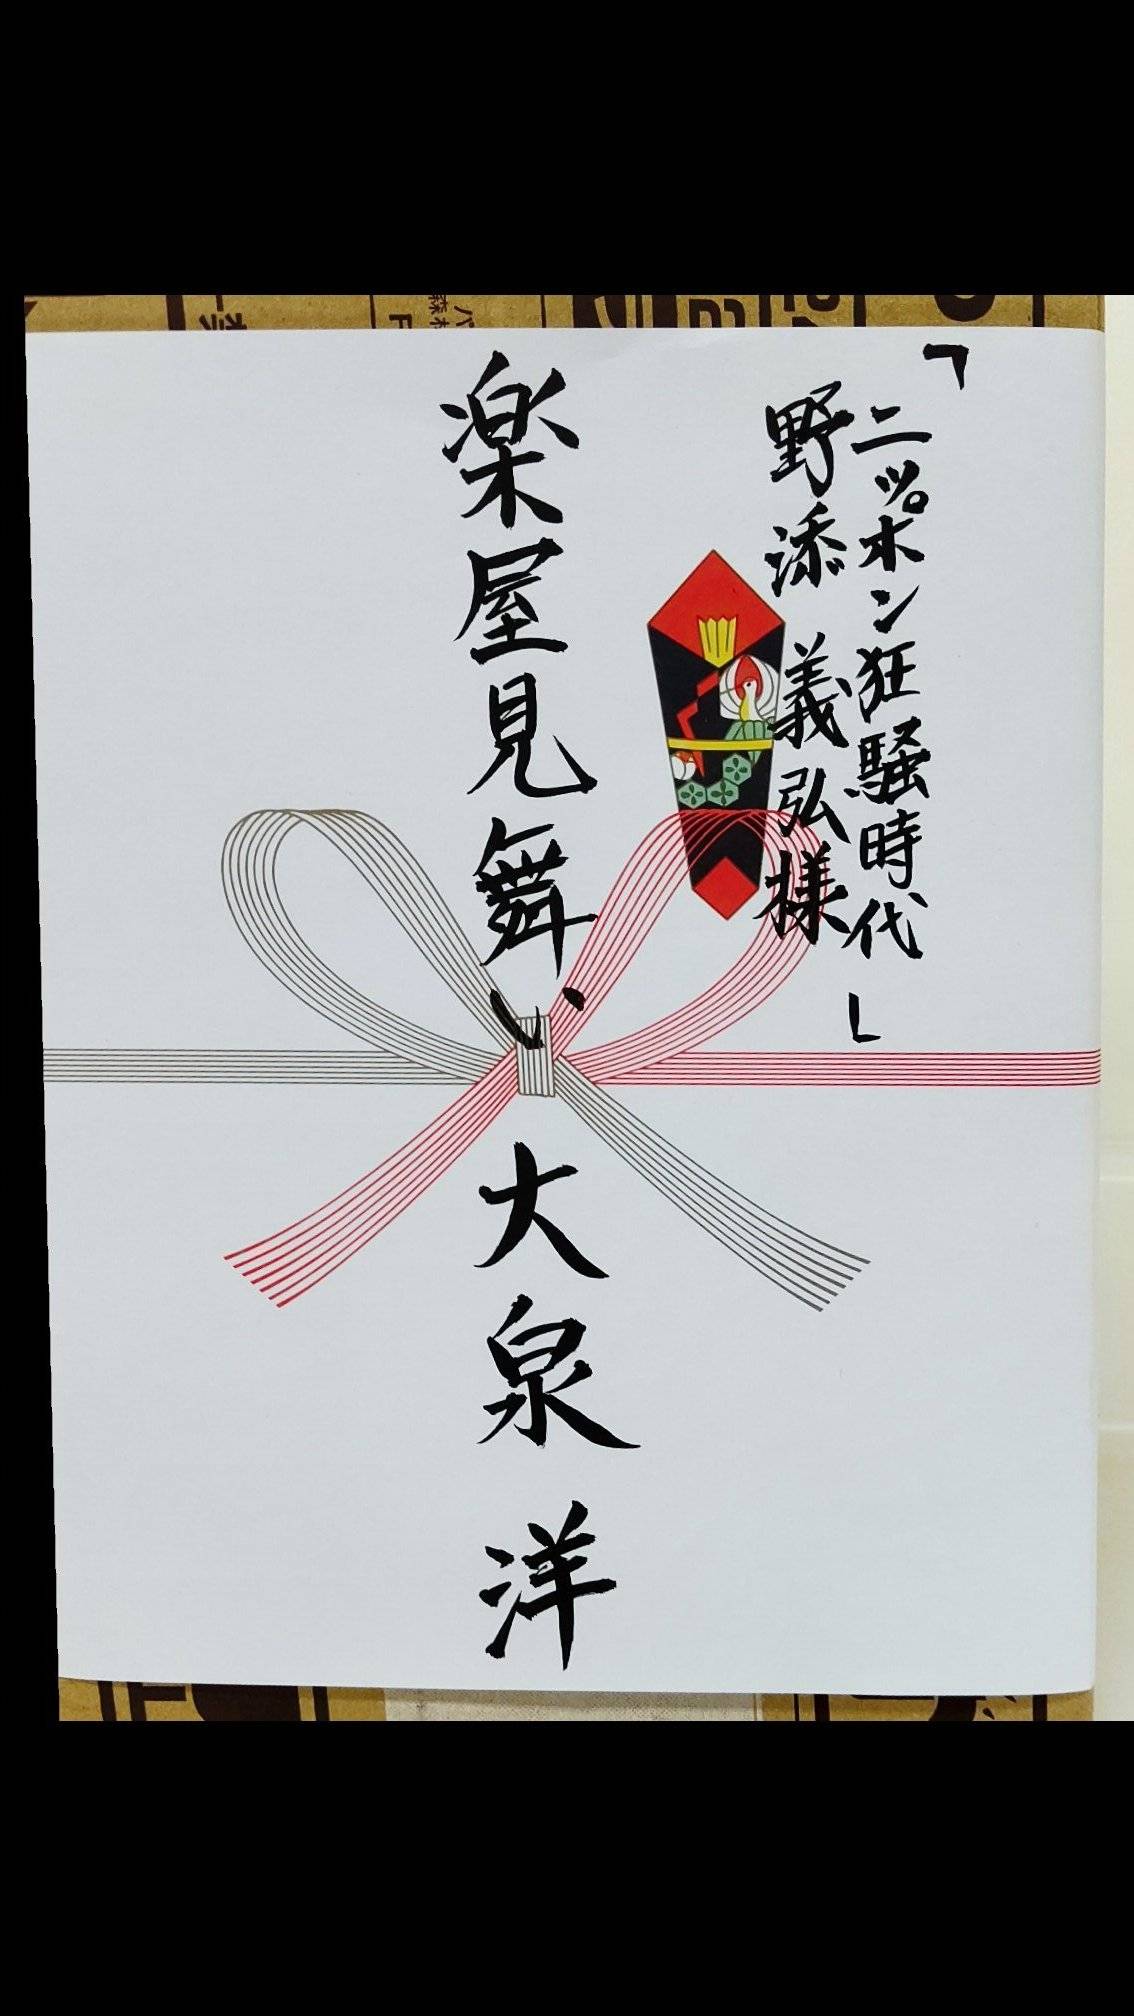 「ニッポン狂騒時代」
野添義弘様
楽屋見舞い 大泉 洋